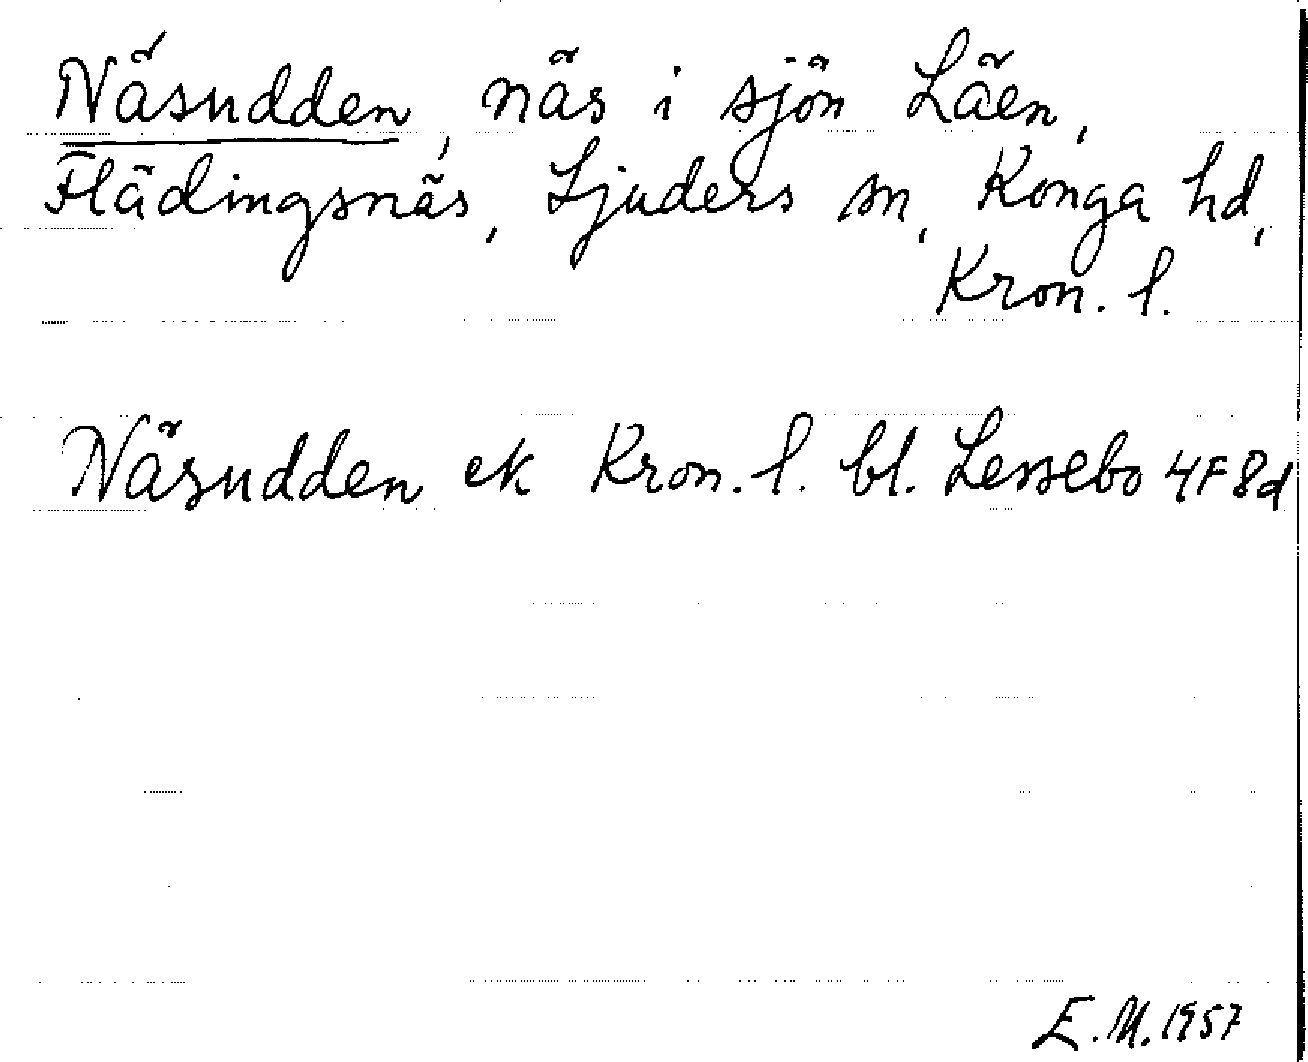 Näsudden, näs i sjön Läen,
Flädingsnäs, Ljuders sn, Konga hd,
Kron. l.
Näsudden ek Kron. l. bl. Lessebo 4F8d
E.M. 1957